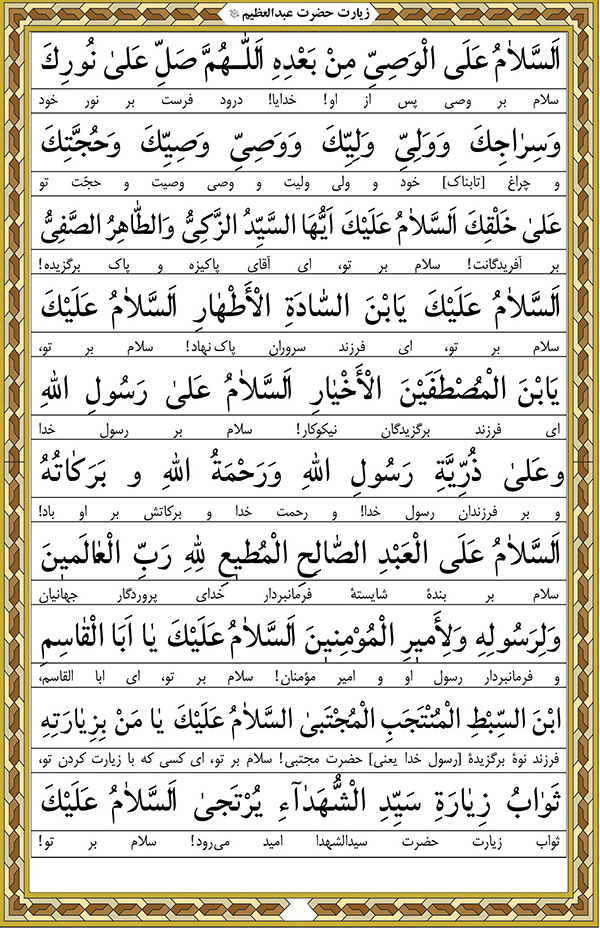 زیارت حضرت عبدالعظیم
اَلسَّلاٰمُ عَلَی الْوَصِیِّ مِنْ بَعْدِهِ اَللّٰـهُمَّ صَلِّ عَلیٰ نُورِكَ
سلام بر وصی پس از او! خدایا! درود فرست بر نور خود
وَسِرٰاجِكَ وَوَلِیِّ وَلِیِّكَ وَوَصِیِّ وَصِیِّكَ وَحُجَّتِكَ
و چراغ [تابناک] خود و ولی ولیت و وصی وصیت و حجّت تو
عَلیٰ خَلْقِكَ اَلسَّلاٰمُ عَلَیْكَ اَیُّهَا السَّیِّدُ الزَّکِیُّ وَالطّٰاهِرُ الصَّفِیُّ
بر آفریدگانت! سلام بر تو، ای آقای پاکیزه و پاک برگزیده!
اَلسَّلاٰمُ عَلَیْكَ یَابْنَ السّٰادَةِ الْأَطْهٰارِ اَلسَّلاٰمُ عَلَیْكَ
سلام بر تو، ای فرزند سروران پاک‌نهاد! سلام بر تو،
یَابْنَ الْمُصْطَفَیْنَ الْأَخْیٰارِ اَلسَّلاٰمُ عَلیٰ رَسُولِ اللهِ
ای فرزند برگزیدگان نیکوکار! سلام بر رسول خدا
وعَلیٰ ذُرِّیَّةِ رَسُولِ اللهِ وَرَحْمَةُ اللهِ و بَرَکٰاتُهُ
و بر فرزندان رسول خدا! و رحمت خدا و برکاتش بر او باد!
اَلسَّلاٰمُ عَلَی الْعَبْدِ الصّٰالِحِ الْمُطیعِ لِلّٰهِ رَبِّ الْعٰالَمینَ
سلام بر بندهٔ شایستهٔ فرمانبردار خدای پروردگار جهانیان
وَلِرَسُولِهِ وَلِأَمیرِ الْمُوْمِنینَ اَلسَّلاٰمُ عَلَیْكَ یٰا اَبَا الْقٰاسِمِ
و فرمانبردار رسول او و امیر مؤمنان! سلام بر تو، ای ابا القاسم،
ابْنَ السِّبْطِ الْمُنْتَجَبِ الْمُجْتَبیٰ السَّلاٰمُ عَلَیْكَ یٰا مَنْ بِزِیٰارَتِهِ
فرزند نوهٔ برگزیدهٔ [رسول خدا یعنی] حضرت مجتبی! سلام بر تو، ای کسی که با زیارت کردن تو،
ثَوٰابُ زِیٰارَةِ سَیِّدِ الْشُّهَدٰآءِ یُرْتَجیٰ اَلسَّلاٰمُ عَلَیْكَ
ثواب زیارت حضرت سیدالشهدا امید می‌رود! سلام بر تو!